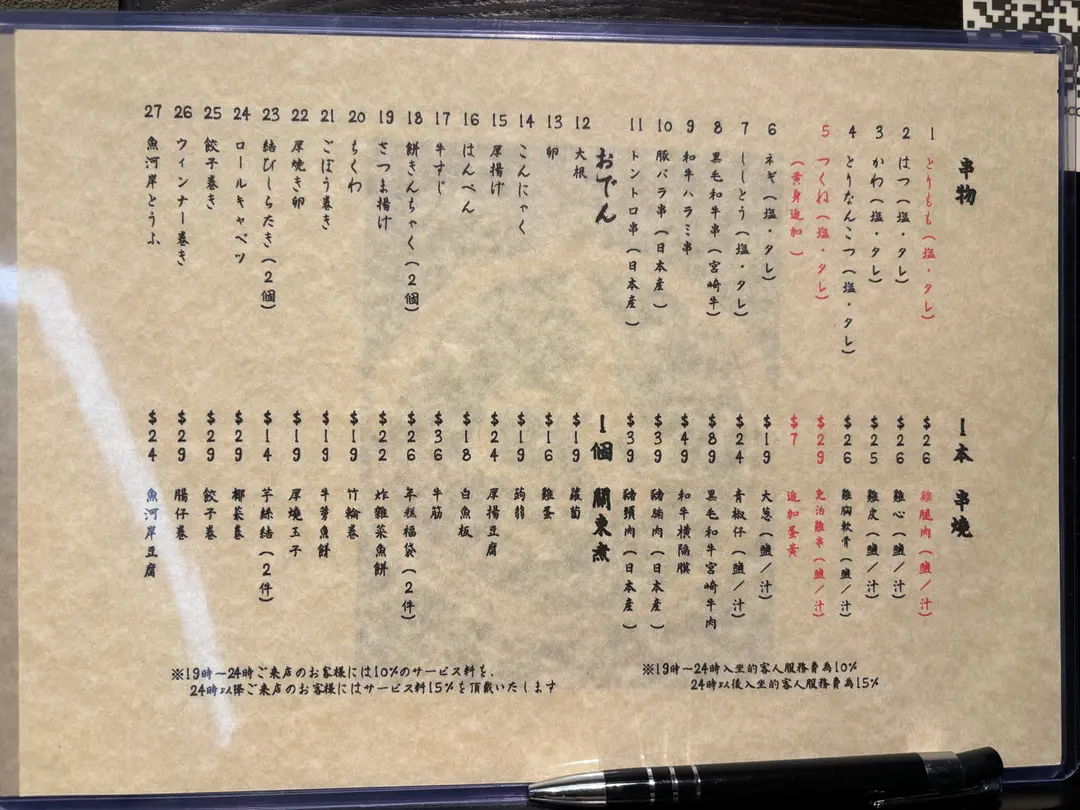 串物 1本 串燒
1 とりもも(塩・タレ) $26 雞腿肉(鹽/汁)
2 はつ(塩・タレ) $26 雞心(鹽/汁)
3 かわ(塩・タレ) $25 雞皮(鹽/汁)
4 とりなんこつ(塩・タレ) $26 雞胸軟骨(鹽/汁)
5 つくね(塩・タレ) $29 免治雞串(鹽/汁)
(黄身追加) $7 追加蛋黃
6 ネギ(塩・タレ) $19 大葱(鹽/汁)
7 ししとう(塩・タレ) $24 青椒仔(鹽/汁)
8 黒毛和牛串(宮崎牛) $89 黒毛和牛宮崎牛肉
9 和牛ハラミ串 $49 和牛橫隔膜
10 豚バラ串(日本産) $39 豬腩肉(日本産)
11 トントロ串(日本産) $39 豬頸肉(日本産)
おでん 1個 關東煮
12 大根 $19 蘿蔔
13 卵 $16 雞蛋
14 こんにゃく $19 蒟蒻
15 厚揚げ $24 厚揚豆腐
16 はんぺん $18 白魚板
17 牛すじ $36 牛筋
18 餅きんちゃく(2個) $26 年糕福袋(2件)
19 さつま揚げ $22 炸雜菜魚餅
20 ちくわ $19 竹輪巻
21 ごぼう巻き $19 牛蒡魚餅
22 厚焼き卵 $19 厚燒玉子
23 結びしらたき(2個) $14 芋絲結(2件)
24 ロールキャベツ $29 椰菜巻
25 餃子巻き $29 餃子巻
26 ウィンナー巻き $29 腸仔巻
27 魚河岸とうふ $24 魚河岸豆腐
※19時~24時ご来店のお客様には10%のサービス料を、
24時以降ご来店のお客様にはサービス料15%を頂戴いたします
※19時~24時入坐的客人服務費為10%
24時以後入坐的客人服務費為15%